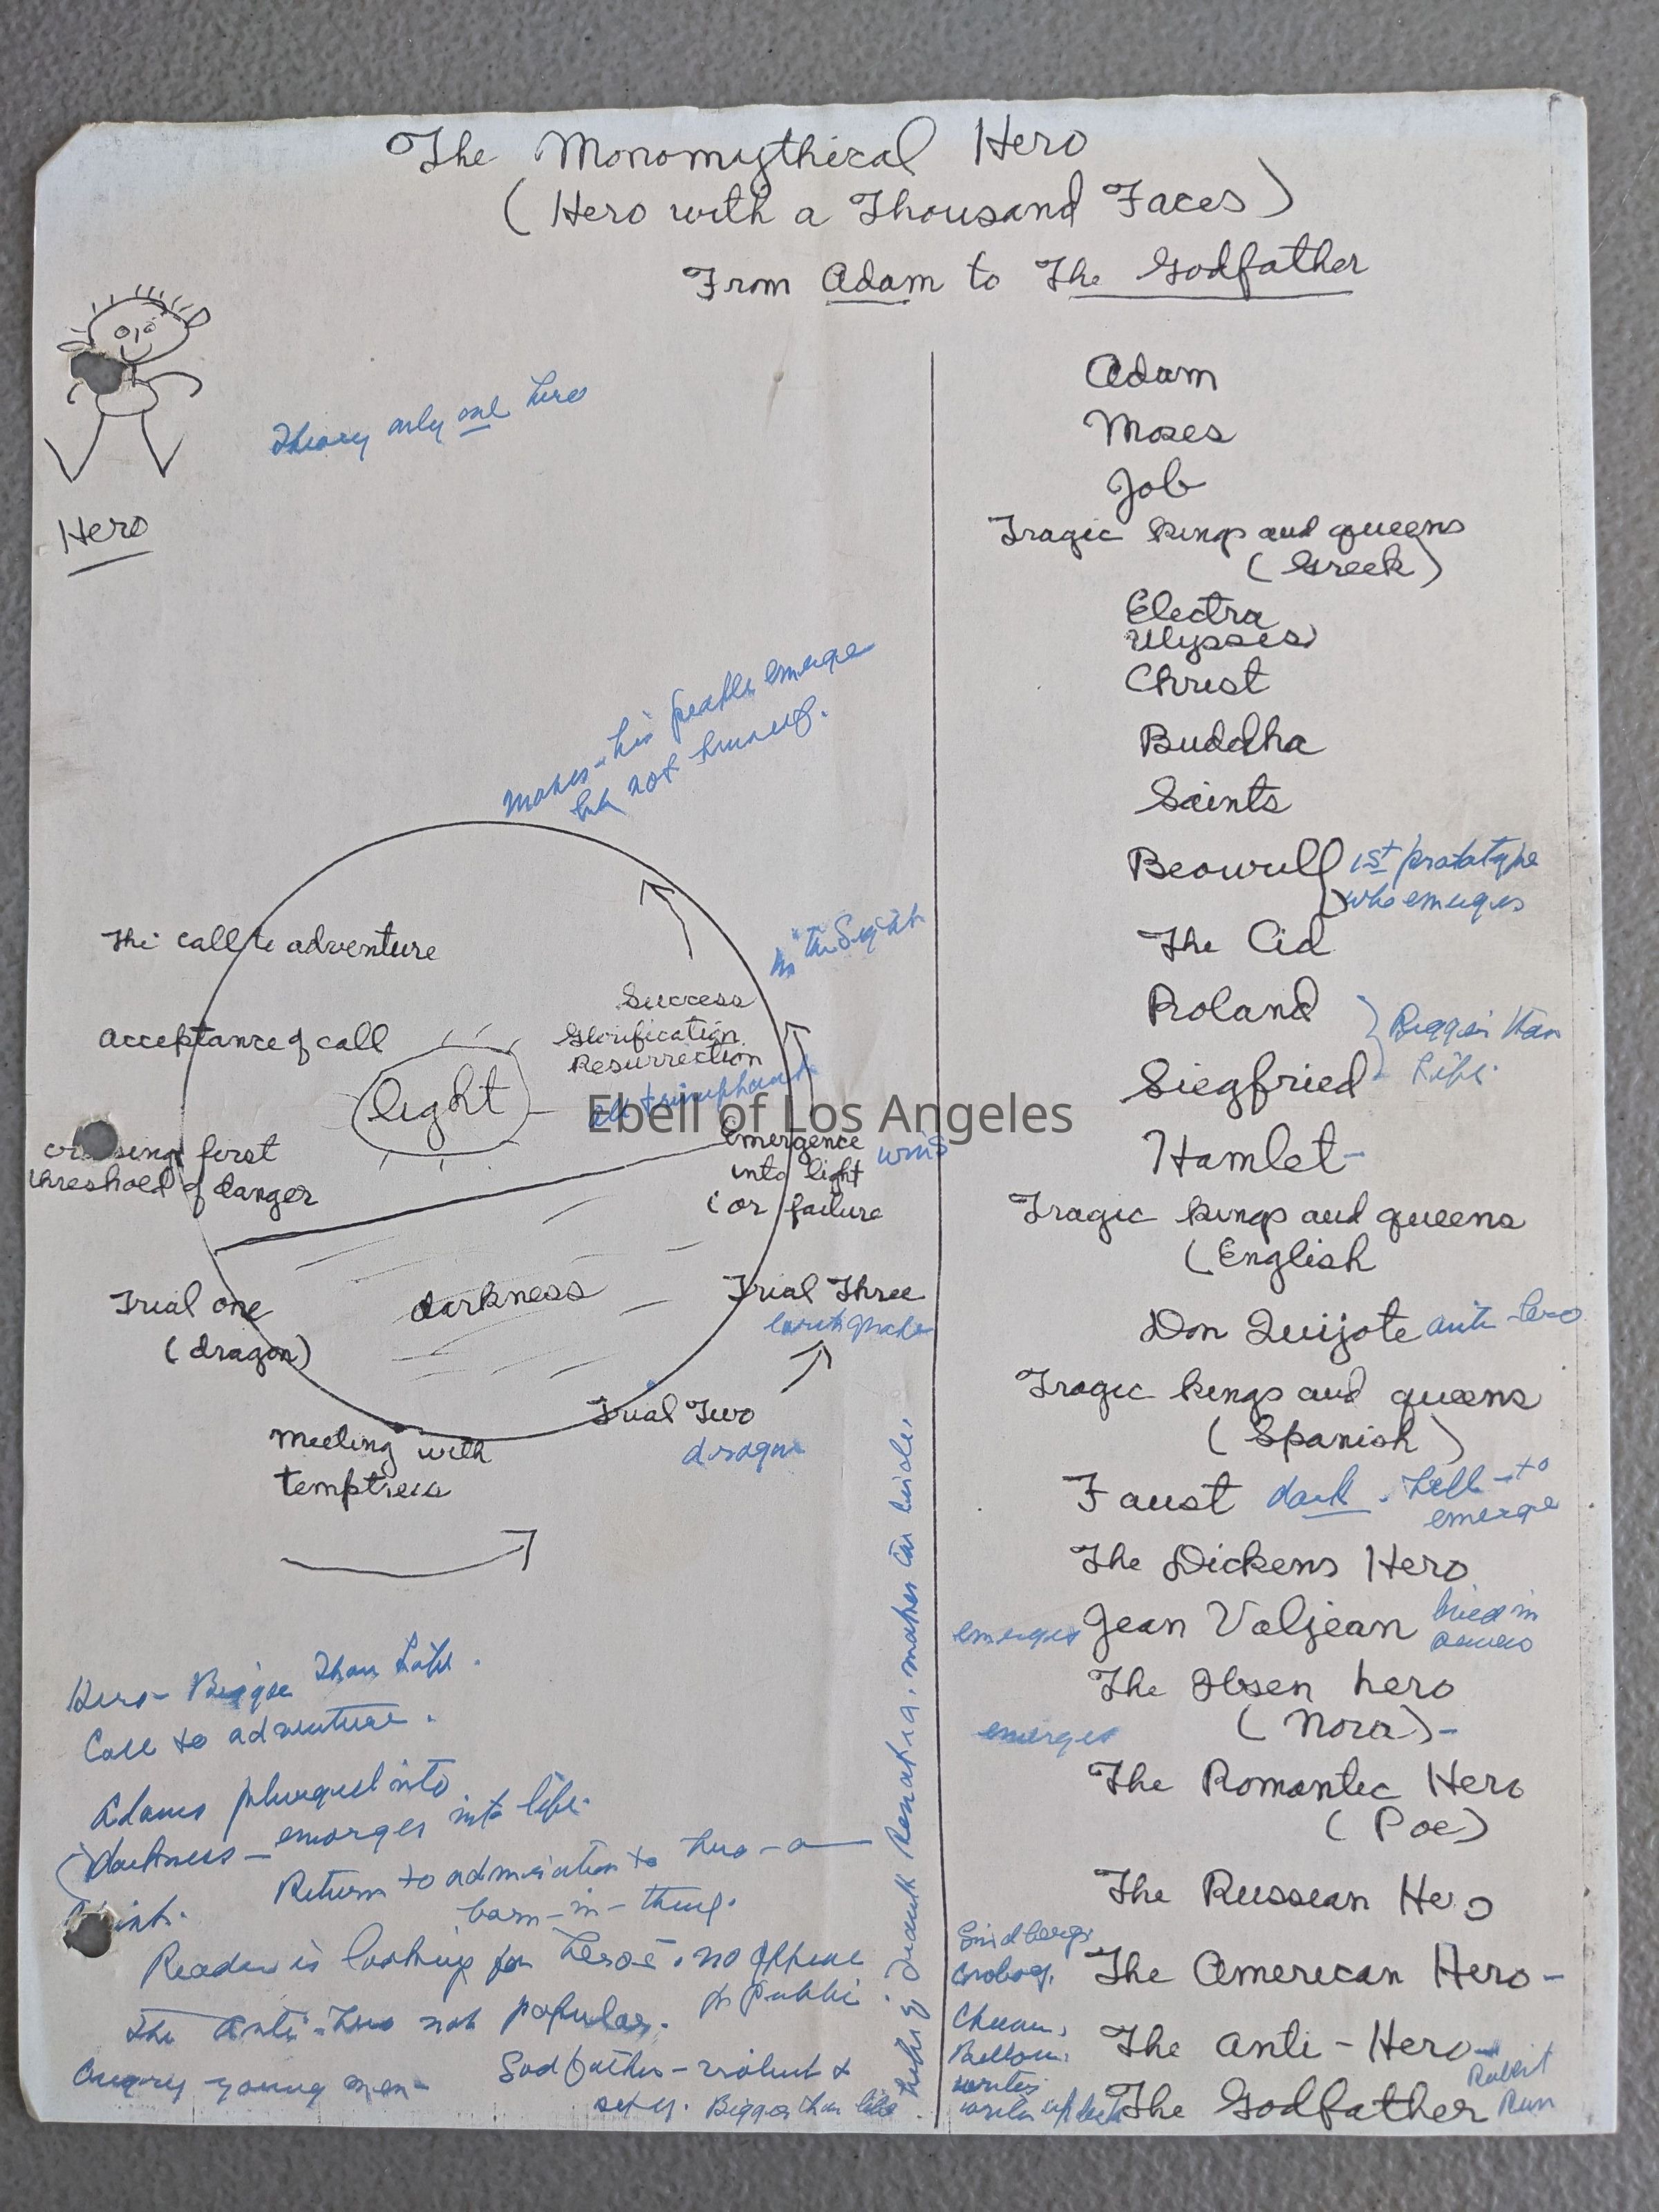 The Monomythical Hero
(Hero with a Thousand Faces)
From Adam to The Godfather
Theory only one hero
Hero
Moses - his people emerge
but not himself.
The call to adventure
Acceptance of call
crossing first
threshold of danger
light
Success
Glorification
Resurrection
all triumphant
Emergence
into light
(or failure
wins
Trial one
(dragon)
darkness
Trial Three
earthquake
Trial Two
dragon
Meeting with
temptress
Hero - Bigger Than Life.
Call to adventure.
Adam plunged into
darkness - emerges into life.
Return to admiration to hero - a
born-in-thing.
Reader is looking for heroes. no appeal
to public
The Anti-hero not popular.
Angry young men -
Godfather - violent &
sexy. Bigger than life.
makes car rides.
Adam
Moses
Job
Tragic kings and queens
(Greek)
Electra
Ulysses
Christ
Buddha
Saints
Beowulf 1st prototype
who emerges
The Cid
Roland
Bigger than
Life.
Siegfried
Hamlet-
Tragic kings and queens
(English
Don Quijote anti-hero
Tragic kings and queens
(Spanish)
Faust dark. hell - to
emerge
The Dickens Hero
emerges Jean Valjean tried in
sewers
The Ibsen hero
emerges (Nora)-
The Romantic Hero
(Poe)
The Russian Hero
The American Hero-
The Anti-Hero-
Rabbit
Run
The Godfather
Ebell of Los Angeles